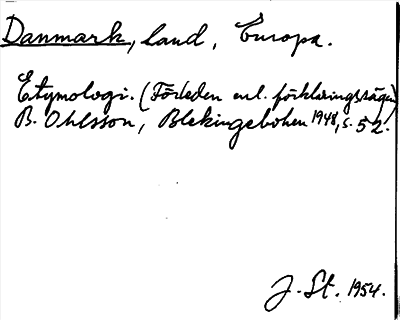 Danmark, land, Europa.
Etymologi. (Förleden enl. förklaringssägen)
B. Ohlsson, Blekingeboken 1948, s. 52.
J. St. 1954.